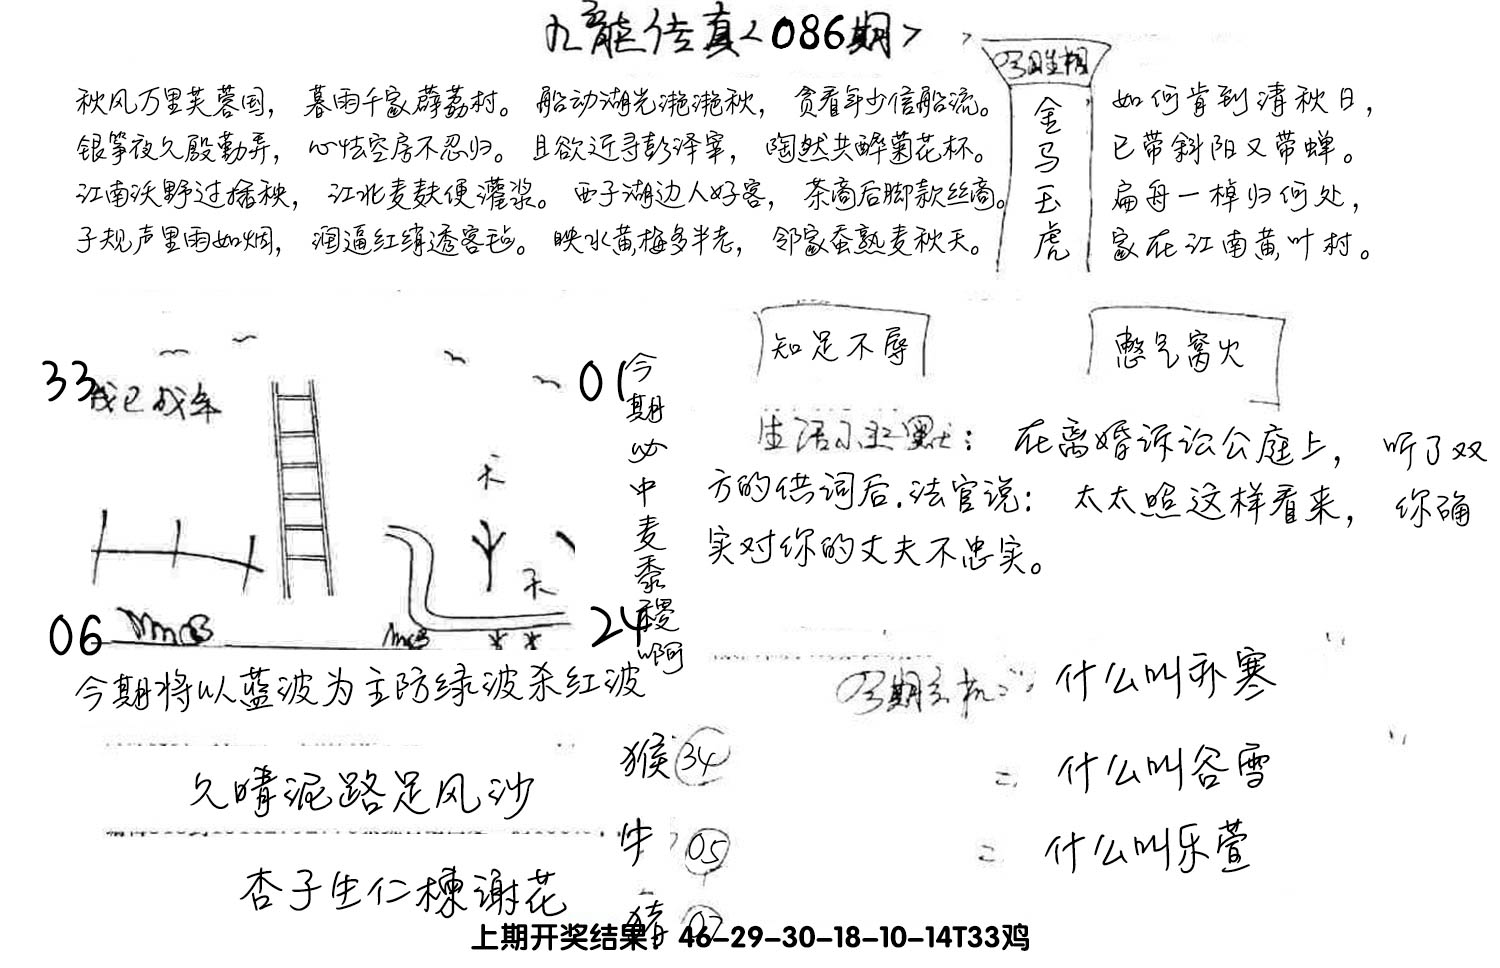 九龙传真<086期>
今期生相
金马玉虎
秋风万里芙蓉国，暮雨千家薜荔村。船动湖光滟滟秋，贪看年少信船流。
银筝夜久殷勤弄，心怯空房不忍归。且欲近寻彭泽宰，陶然共醉菊花杯。
江南沃野过插秧，江北麦麸便灌浆。西子湖边人好客，茶商后脚款丝商。
子规声里雨如烟，润逼红绡透客毡。映水黄梅多半老，邻家蚕熟麦秋天。
如何肯到清秋日，
已带斜阳又带蝉。
扁舟一棹归何处，
家在江南黄叶村。
33
01
06
24
天
天
今期必中麦黍稷啊
今期将以蓝波为主防绿波杀红波
久晴泥路足风沙
杏子生仁楝谢花
猴 34
牛 05
猪
知足不辱
憋气窝火
生活幽默：在离婚诉讼公庭上，听了双
方的供词后.法官说：太太照这样看来，你确
实对你的丈夫不忠实。
今期玄机：什么叫祁寒
= 什么叫谷雪
= 什么叫乐萱
上期开奖结果：46-29-30-18-10-14T33鸡